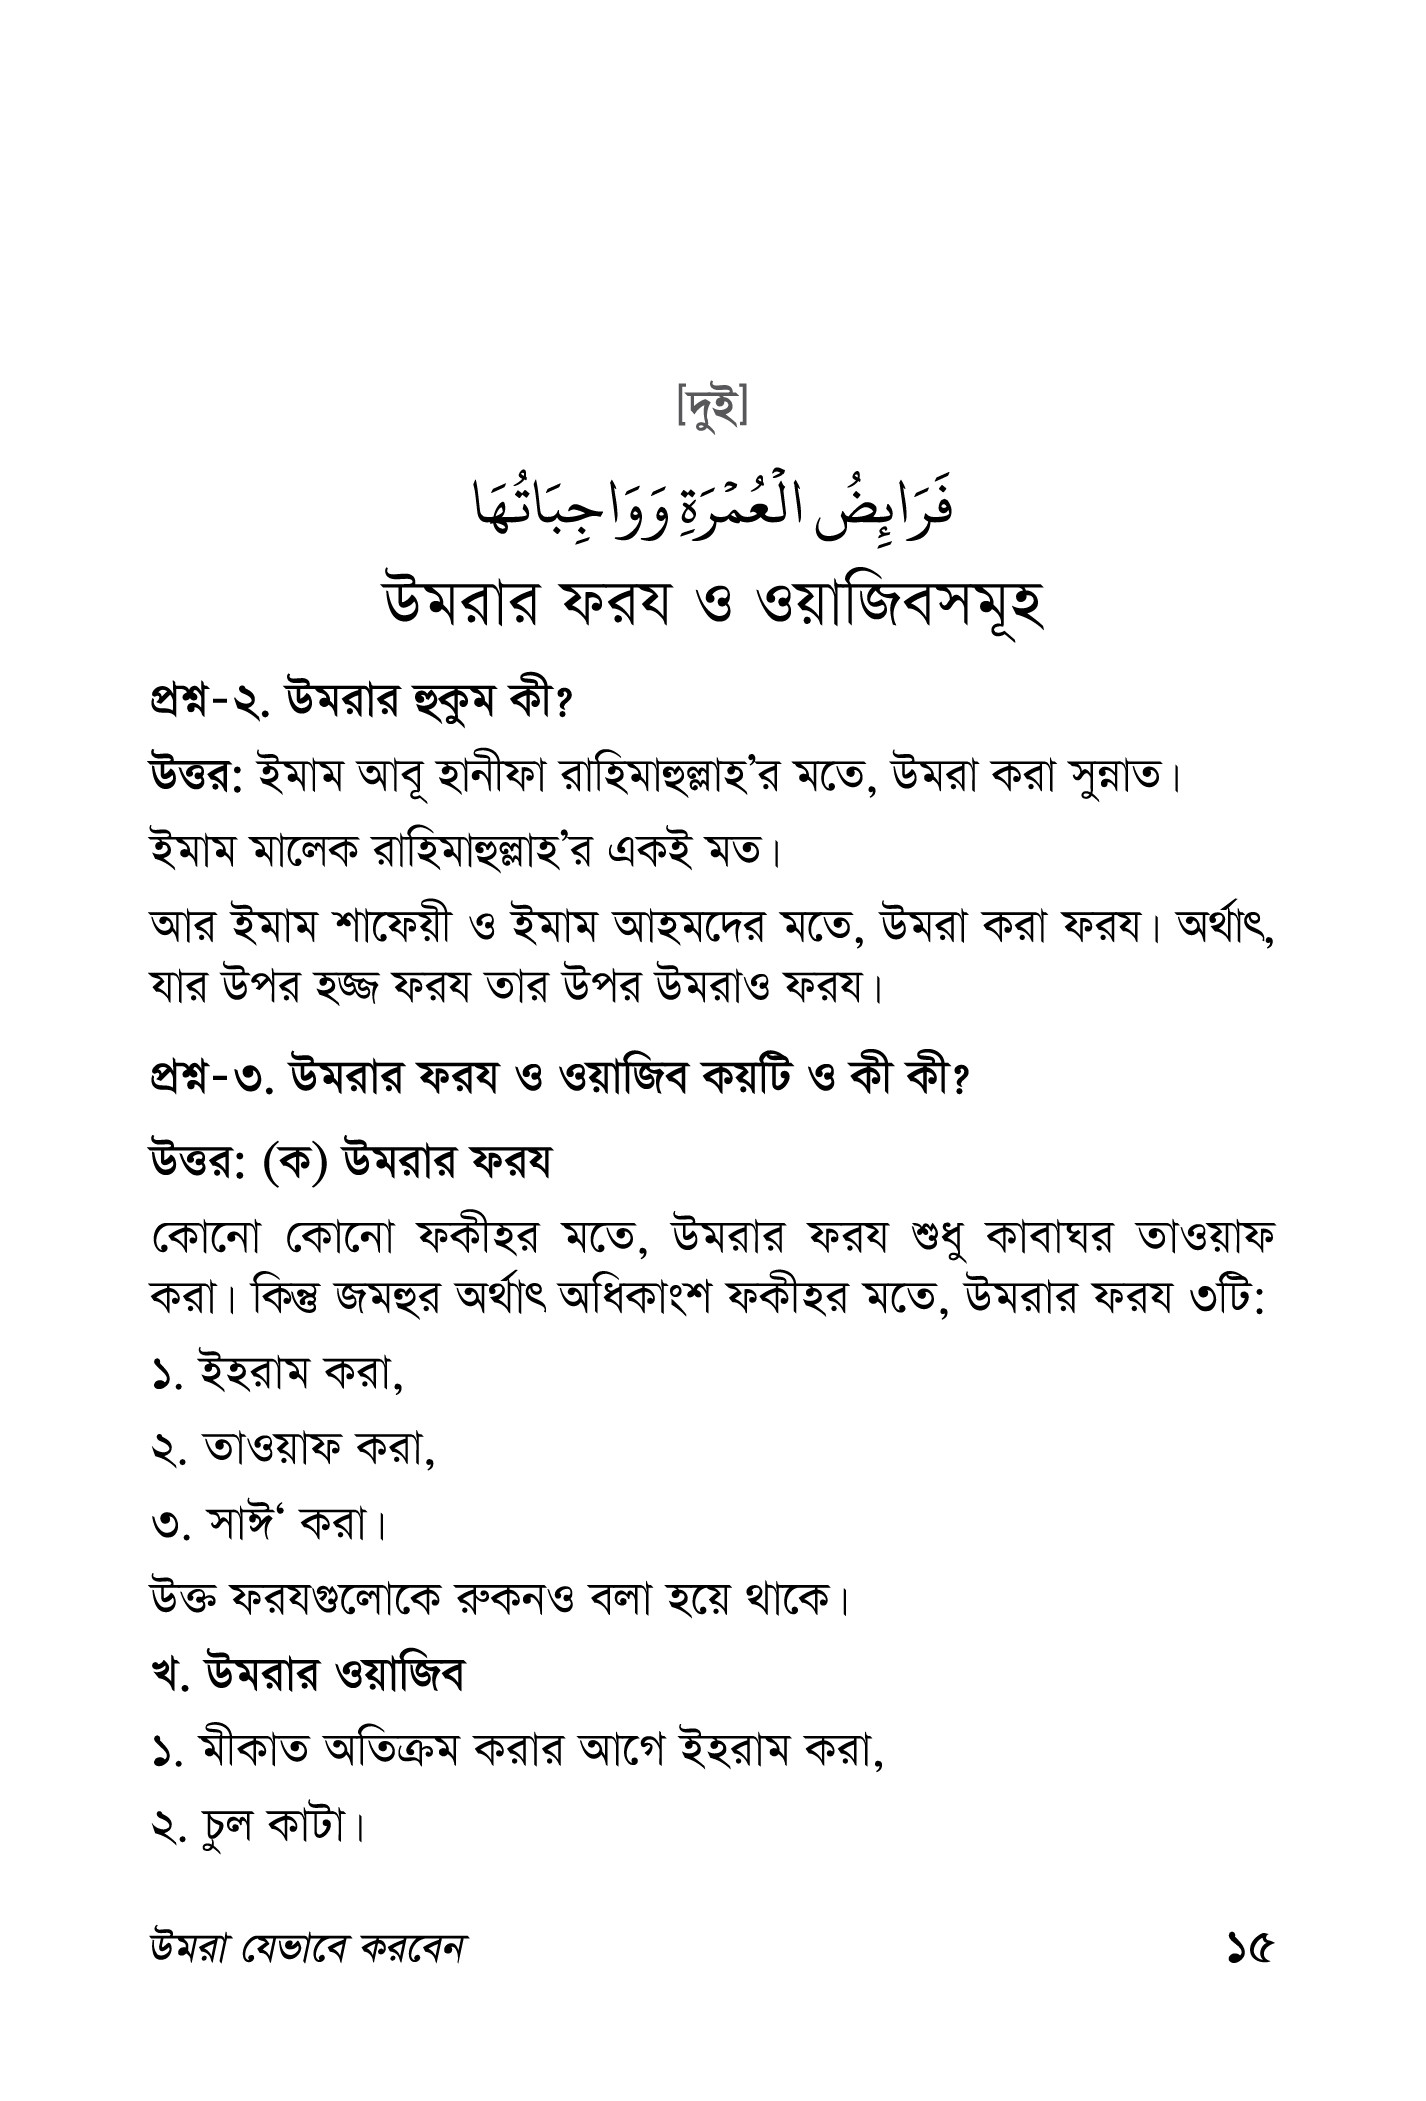 [দুই]
فَرَائِضُ الْعُمْرَةِ وَوَاجِبَاتُهَا
উমরার ফরয ও ওয়াজিবসমূহ
প্রশ্ন-২. উমরার হুকুম কী?
উত্তর: ইমাম আবূ হানীফা রাহিমাহুল্লাহ’র মতে, উমরা করা সুন্নাত।
ইমাম মালেক রাহিমাহুল্লাহ’র একই মত।
আর ইমাম শাফেয়ী ও ইমাম আহমদের মতে, উমরা করা ফরয। অর্থাৎ,
যার উপর হজ্জ ফরয তার উপর উমরাও ফরয।
প্রশ্ন-৩. উমরার ফরয ও ওয়াজিব কয়টি ও কী কী?
উত্তর: (ক) উমরার ফরয
কোনো কোনো ফকীহর মতে, উমরার ফরয শুধু কাবাঘর তাওয়াফ
করা। কিন্তু জমহুর অর্থাৎ অধিকাংশ ফকীহর মতে, উমরার ফরয ৩টি:
১. ইহরাম করা,
২. তাওয়াফ করা,
৩. সাঈ‘ করা।
উক্ত ফরযগুলোকে রুকনও বলা হয়ে থাকে।
খ. উমরার ওয়াজিব
১. মীকাত অতিক্রম করার আগে ইহরাম করা,
২. চুল কাটা।
উমরা যেভাবে করবেন ১৫